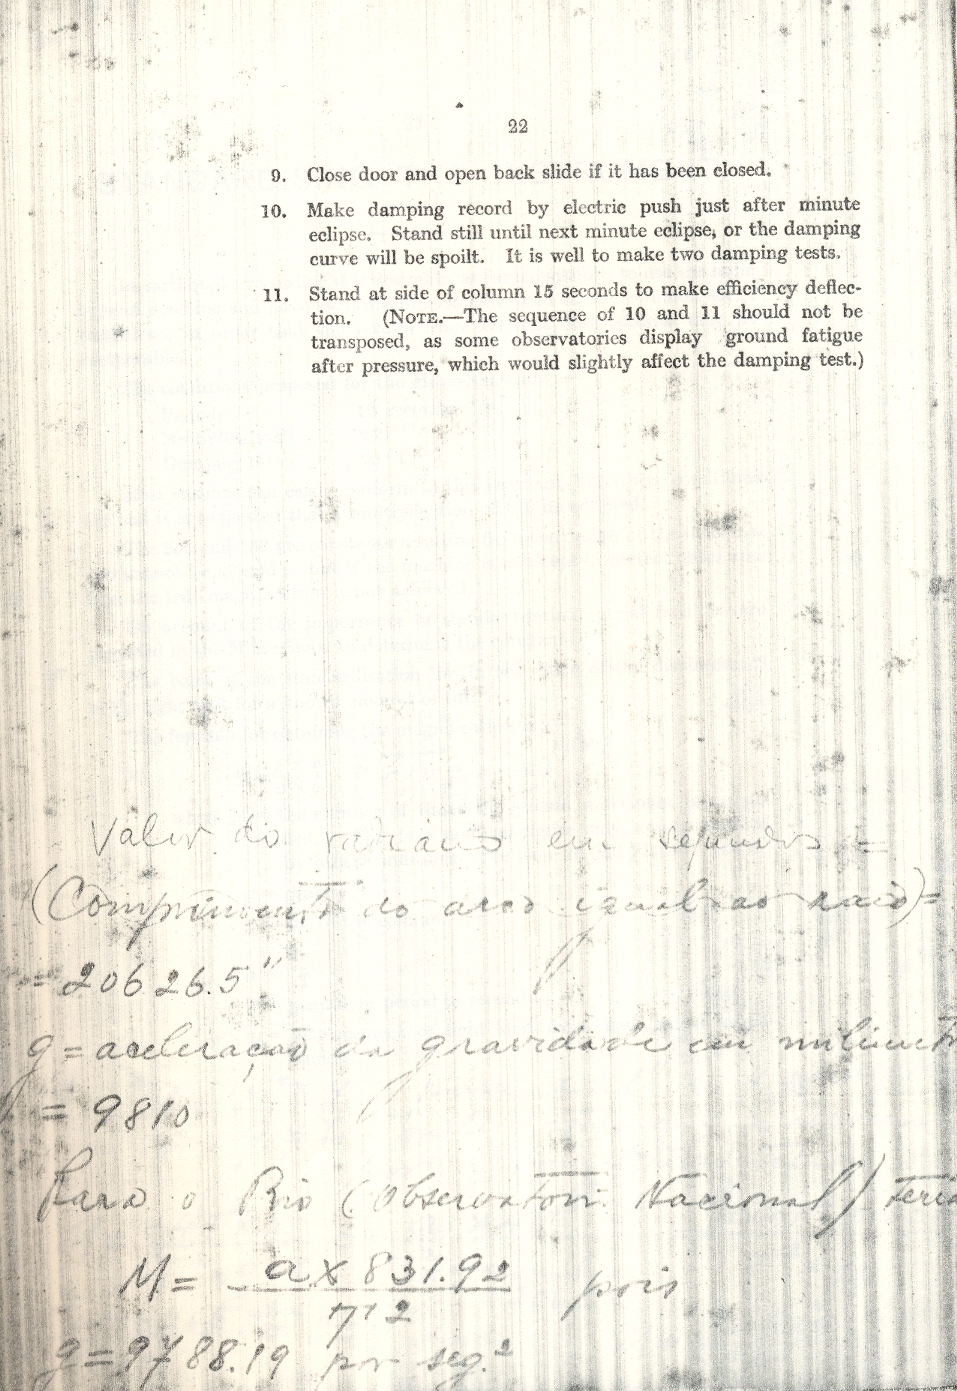 22
9. Close door and open back slide if it has been closed.
10. Make damping record by electric push just after minute
eclipse. Stand still until next minute eclipse, or the damping
curve will be spoilt. It is well to make two damping tests.
11. Stand at side of column 15 seconds to make efficiency deflec-
tion. (NOTE.—The sequence of 10 and 11 should not be
transposed, as some observatories display ground fatigue
after pressure, which would slightly affect the damping test.)
Valor do radiano em segundos =
(Comprimento do arco igual ao raio) =
= 20626.5"
g = aceleração da gravidade em milimetr
= 9810
Para o Rio (Observatori Nacional) teria
M = a x 831.92 pois
712
g = 9788.19 por seg.²